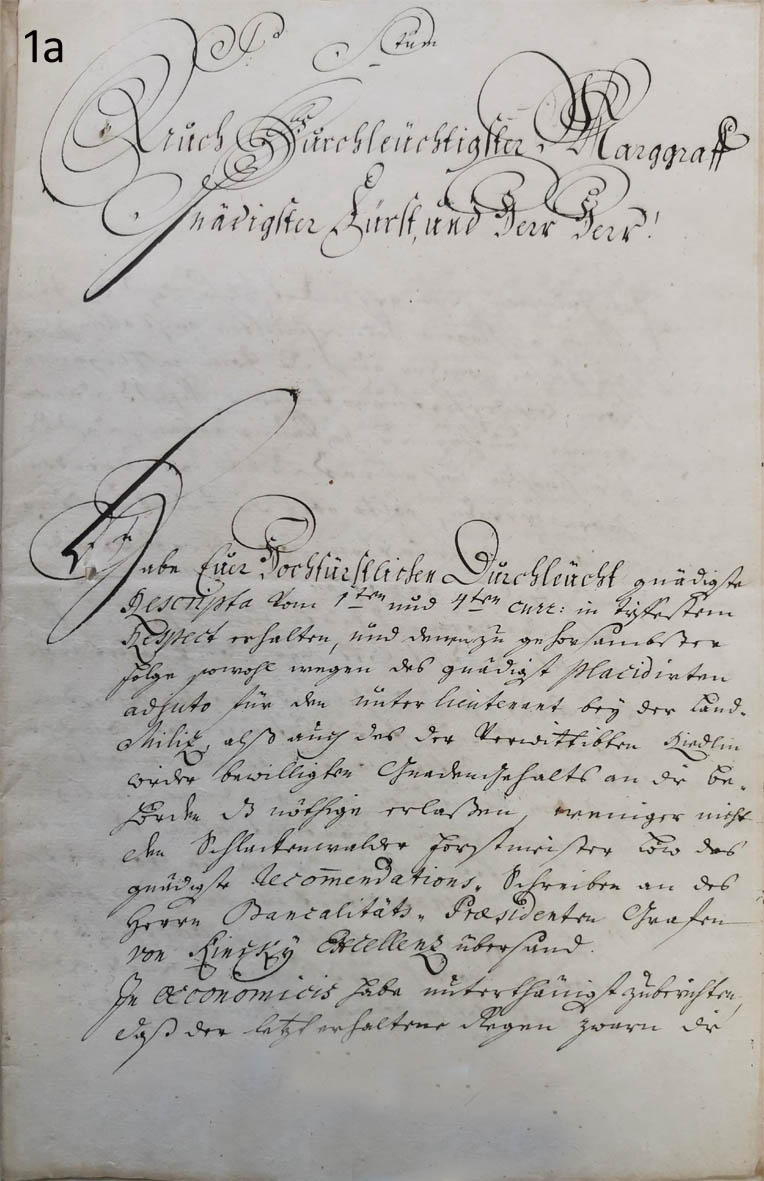 1a
Durchleuchtigster Marggraff
Gnädigster Fürst, und Herr Herr!
Habe Euer Hochfürstlichen Durchleücht gnädigste
Rescripta vom 1ten und 4ten curr: in tieffestem
Respect erhalten, und deren zu gehorsambster
folge sowohl wegen des gnädigst placidirten
adjuto für den unter lieutenant bey der Land-
Miliz, alß auch des der Verwittibten Riedlin
wider bewilligten Gnadengehalts an die be-
hörden dz nöthige erlaßen, weniger nicht
den Schlackenwalder forstmeister das
gnädigste recom̄endations-Schreiben an des
Herrn Bancalitäts-Præsidenten Grafen
von Kinsky Excellenz übersand.
In œconomicis habe unterthänigst zu berichten,
daß der letzt erhaltene Regen zwarn die